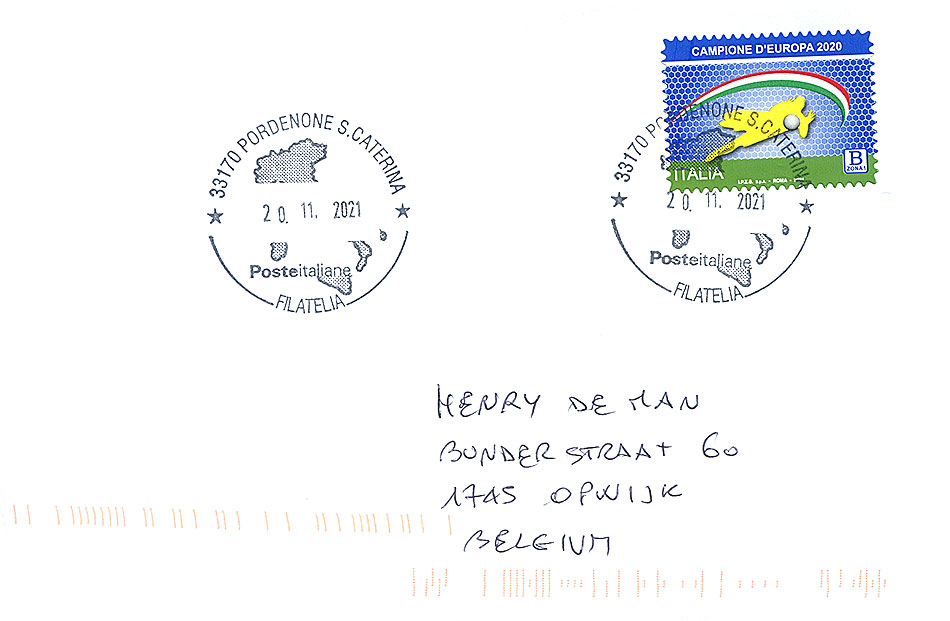 CAMPIONE D'EUROPA 2020
ITALIA
I.P.Z.S. S.p.A. - ROMA -
B
ZONA 1
33170 PORDENONE S.CATERINA
20. 11. 2021
Posteitaliane
FILATELIA
33170 PORDENONE S.CATERINA
20. 11. 2021
Posteitaliane
FILATELIA
HENRY DE MAN
BUNDERSTRAAT 60
1745 OPWIJK
BELGIUM